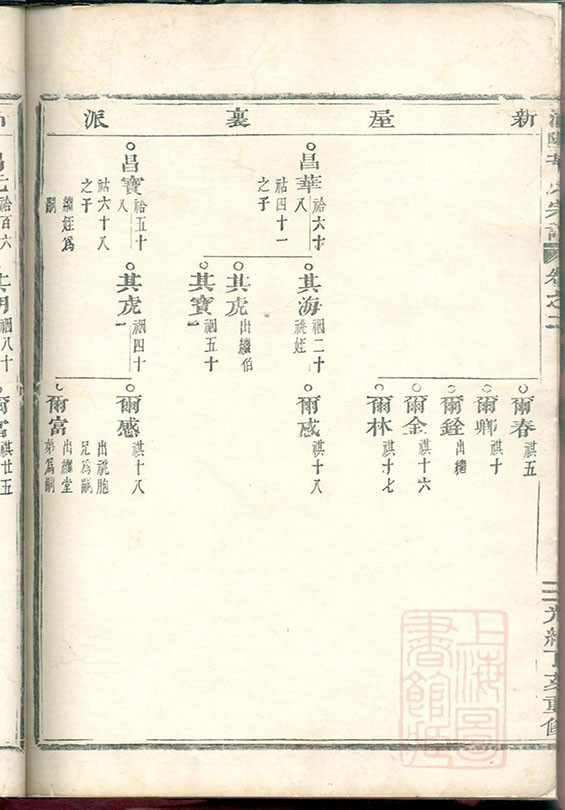 新屋裏派
爾春 祺五
爾卿 祺十
爾銓 出繼
爾金 祺十六
爾林 祺十七
昌華 祫六十八
祜四十一之子
其海 禂二十
祧姪
爾感 祺十八
其虎 出繼伯
其寶 禂五十一
昌寶 祫五十八
祜六十八之子
繼姪為嗣
其虎 禂四十一
爾感 祺十八
出祧胞兄為嗣
爾富 出繼堂弟為嗣
卷之二
光緒丁亥重修
上海圖書館藏
祫百六
其明 禂八十
爾富 祺廿五